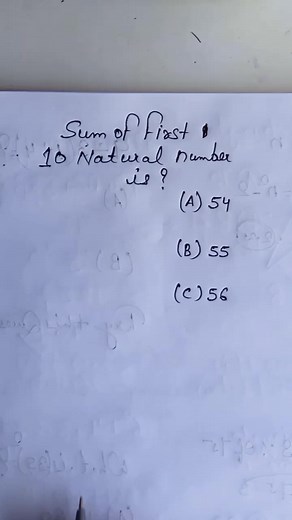 Sum of first
10 Natural number
is?
(A) 54
(B) 55
(C) 56